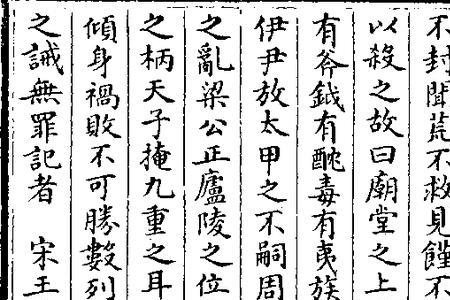 不封聞荒不救見饉不
以殺之故曰廟堂之上
有斧鉞有酖毒有夷族
伊尹放太甲之不嗣周
之亂梁公正廬陵之位
之柄天子掩九重之耳
傾身禍敗不可勝數列
之誡無罪記者　宋王